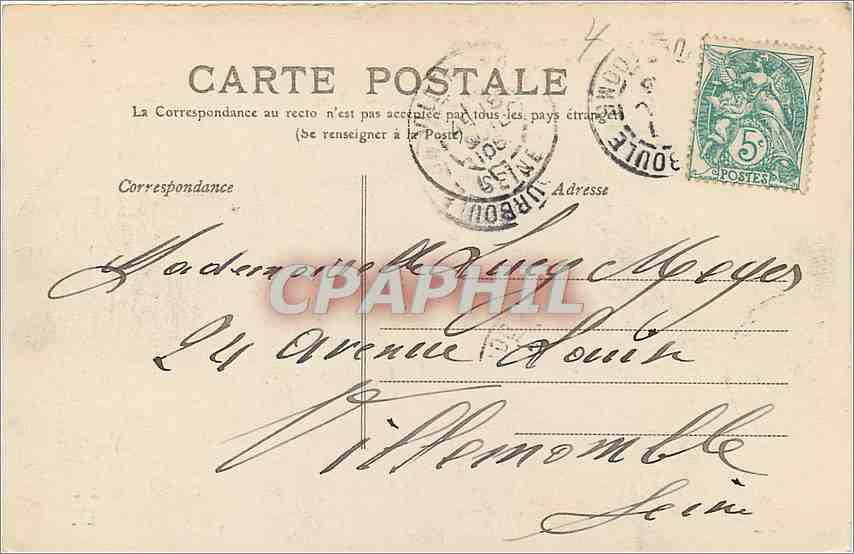 4
CARTE POSTALE
La Correspondance au recto n'est pas acceptée par tous les pays étrangers
(Se renseigner à la Poste)
Correspondance
Adresse
5c
POSTES
BOULE
BOURBOULE
Mademoiselle Lucy Meyer
CPAPHIL
24 avenue Louis
Villemomble
Seine